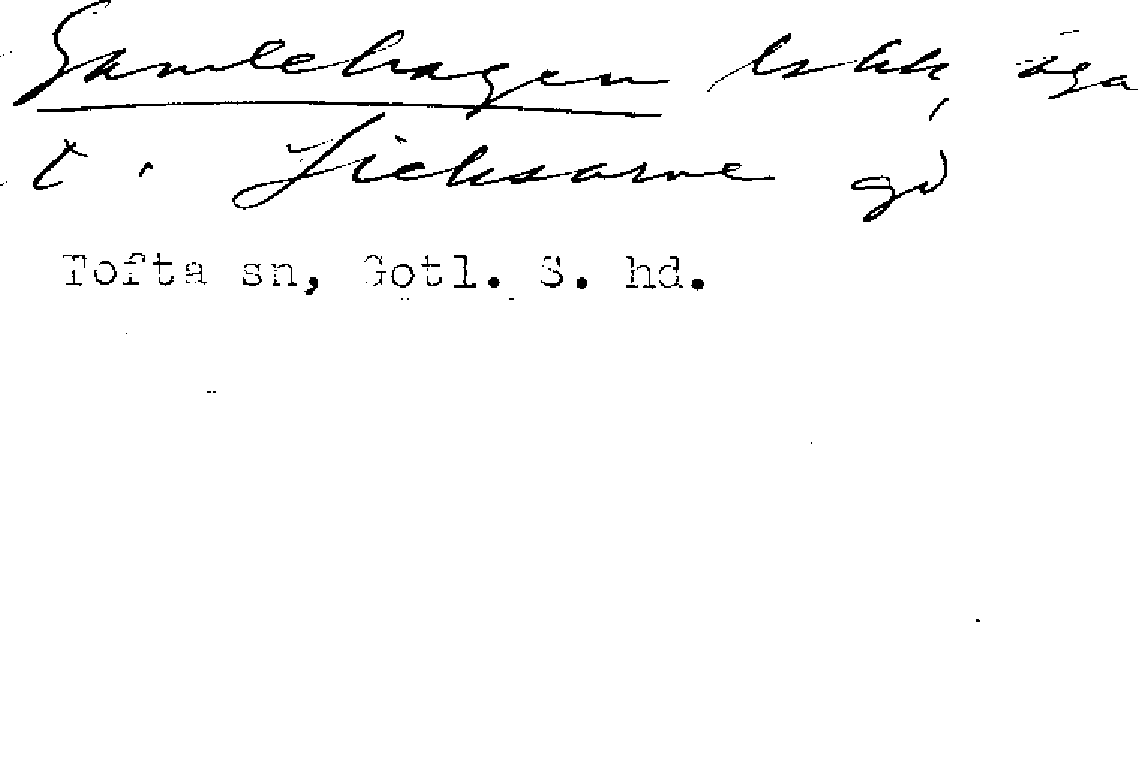 Gamlehagen bskk, äga
t. Smicksarve gd
Tofta sn, Gotl. S. hd.